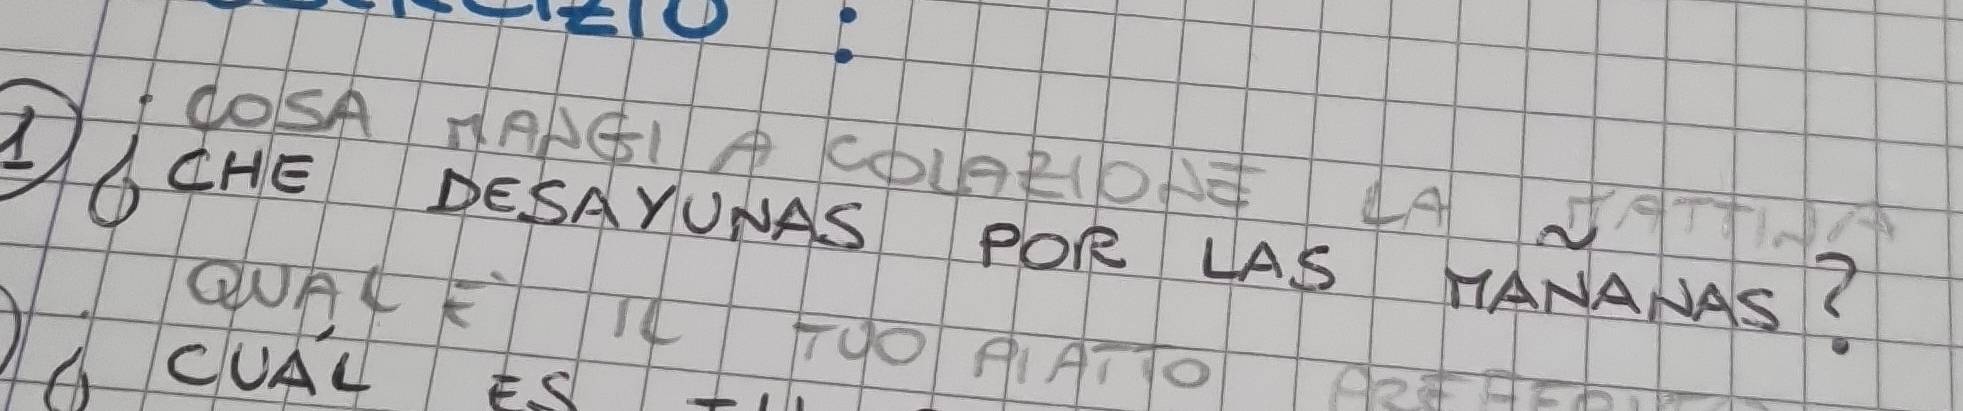 ESERCIZIO :
① COSA MANGI A COLAZIONE LA MATTINA
¿ CHE DESAYUNAS POR LAS MAÑANAS?
QUAL È IL TUO PIATTO PREFERITO
¿ CUÁL ES TU